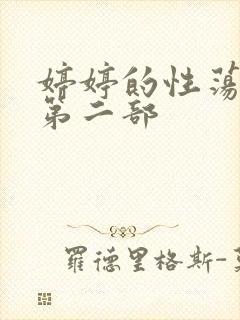 婷婷的性荡
第二部
羅德里格斯-莫